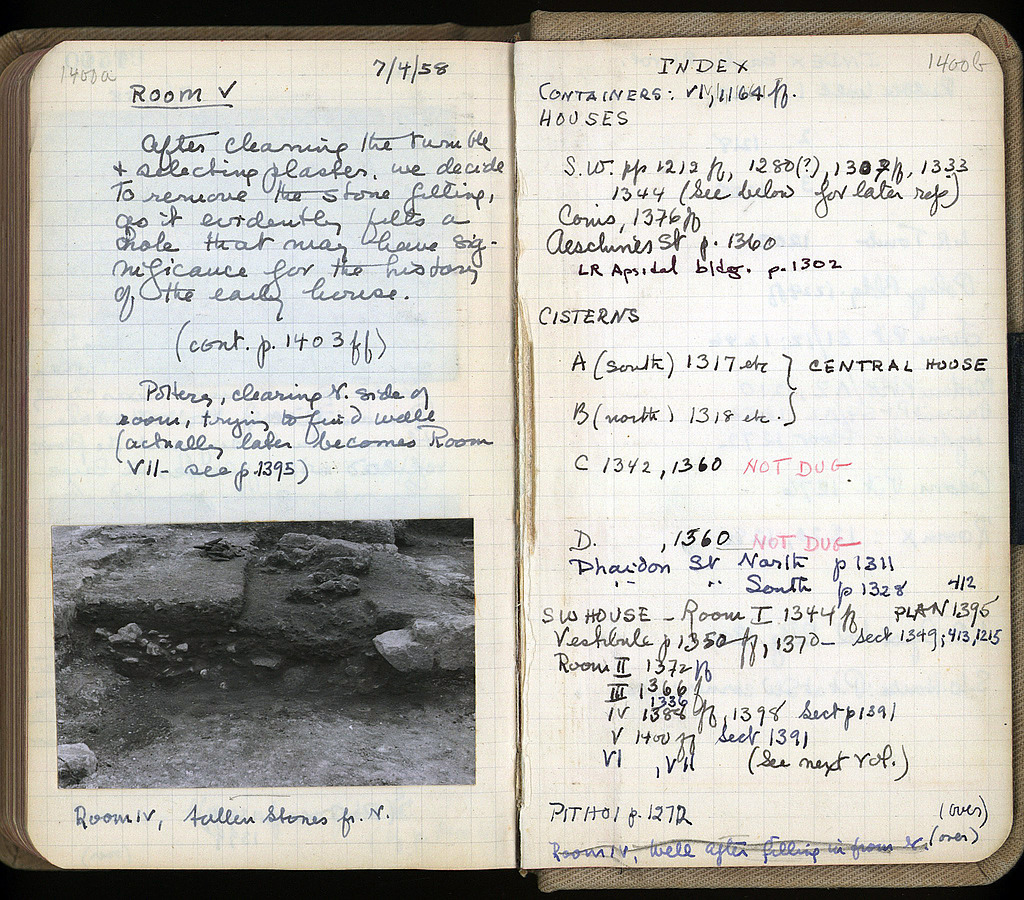 1400a
7/4/58
Room V
After cleaning the tumble
+ selecting plaster, we decide
to remove the stone filling,
as it evidently fills a
hole that may have sig-
nificance for the history
of the early house.
(cont. p. 1403 ff)
Pottery, clearing N. side of
room, trying to find wall
(actually later becomes Room
VII - see p.1395)
Room IV, fallen stones fr. N.
1400b
INDEX
CONTAINERS: VI, 1164 ff.
HOUSES
S.W. pp 1212 ff, 1280(?), 1307ff, 1333
1344 (See below for later refs)
Coins, 1376ff
Aeschines St p. 1360
LR Apsidal bldg. p.1302
CISTERNS
A (south) 1317 etc } CENTRAL HOUSE
B (north) 1318 etc. }
C 1342, 1360 NOT DUG
D. , 1360 NOT DUG
Phaidon St North p 1311
" " South p 1328
412
SW HOUSE - Room I 1344 ff PLAN 1395
Vestibule p 1350 ff, 1370- Sect 1349, 413, 1215
Room II 1372 ff
III 1366 f
1336
IV 1388 ff, 1398 Sect p 1391
V 1400 ff Sect 1391
VI , VII (See next vol.)
PITHOI p. 1272 (over)
Room IV, well after filling in from N. (over)